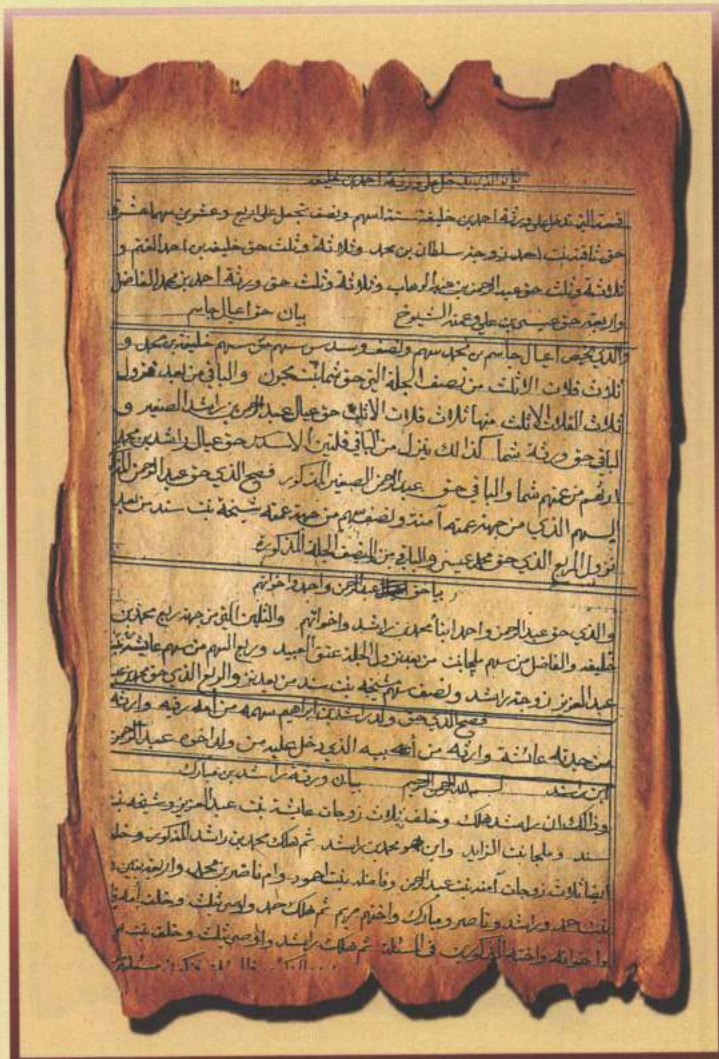 بيان الذي يدخل على ورثة احمد بن خليفه
قسمة التي تدخل على ورثة احمد بن خليفة ستة اسهم ونصف تجعل على اربع وعشرين سهما عشرة
حق بنت احمد زوجة سلطان بن محمد وثلاثة وثلث حق خليفه بن احمد الغتم و
ثلاثة وثلث حق عبد الرحمن بن عبد الوهاب وثلاثة وثلث حق ورثة احمد بن محمد الفاضل
واربعة حق عيسى بن علي وعمته الشيوخ بيان حق اعيال جاسم
والذي يخص اعيال جاسم بن محمد سهم ونصف وسدس سهم من سهم خليفة بن محمد و
ثلاث فلات الاثلث من نصف الجلة التي حق شما بنت والباقي من بعد نزول
ثلاث الفلات الاثلث منها ثلاث فلات الاثلث حق عيال عبد الرحمن بن راشد الصغير و
الباقي حق ورثة شما كذالك ينزل من الباقي فلتين الاسدس حق عيال راشد بن محمد
ارثهم من عمتهم شما والباقي حق عبد الرحمن الصغير المذكور فصح الذي حق عبد الرحمن المذكور
السهم الذي من جهة عمته آمنة ونصف سهم من جهة عمته شيخة بنت سند من بعد
نزول الربع الذي حق محمد عيسى والباقي من النصف الجلة المذكورة
حق عبد الرحمن واحمد واخواتهم
والذي حق عبد الرحمن واحمد ابنا محمد بن راشد واخواتهم والثلين التي من جهة ربع محمد بن
خليفه والفاضل من سهم بنت من بعد نزول الجلة عتق العبيد وربع السهم من سهم عايشة بنت
عبد العزيز زوجة راشد ونصف سهم شيخه بنت سند من بعد نزول الربع الذي حق محمد
فصح الذي حق ولد راشد بن ابراهيم سهمه من امه رقيه وارثه
من جدته عائشة وارثه من أمه الذي دخل عليه من ولد اخوه عبد الرحمن
ابن راشد بسم الله الرحمن الرحيم بيان ورثة راشد بن مبارك
وذالك ان راشد هلك وخلف ثلاث زوجات عايشة بنت عبد العزيز وشيخه بنت
سند و بنت الزايد وابن هو محمد بن راشد ثم هلك محمد بن راشد المذكور وخلف
ايضا ثلاث زوجات آمنه بنت عبد الرحمن وفاضله بنت وام ناصر بن محمد واربعة بنين
بنت حمد وراشد وناصر ومبارك واختهم مريم ثم هلك حمد واوصى بثلث وخلف أمه
واخوانه واخته المذكورين في المسئلة ثم هلك راشد واوصى بثلث وخلف بنت